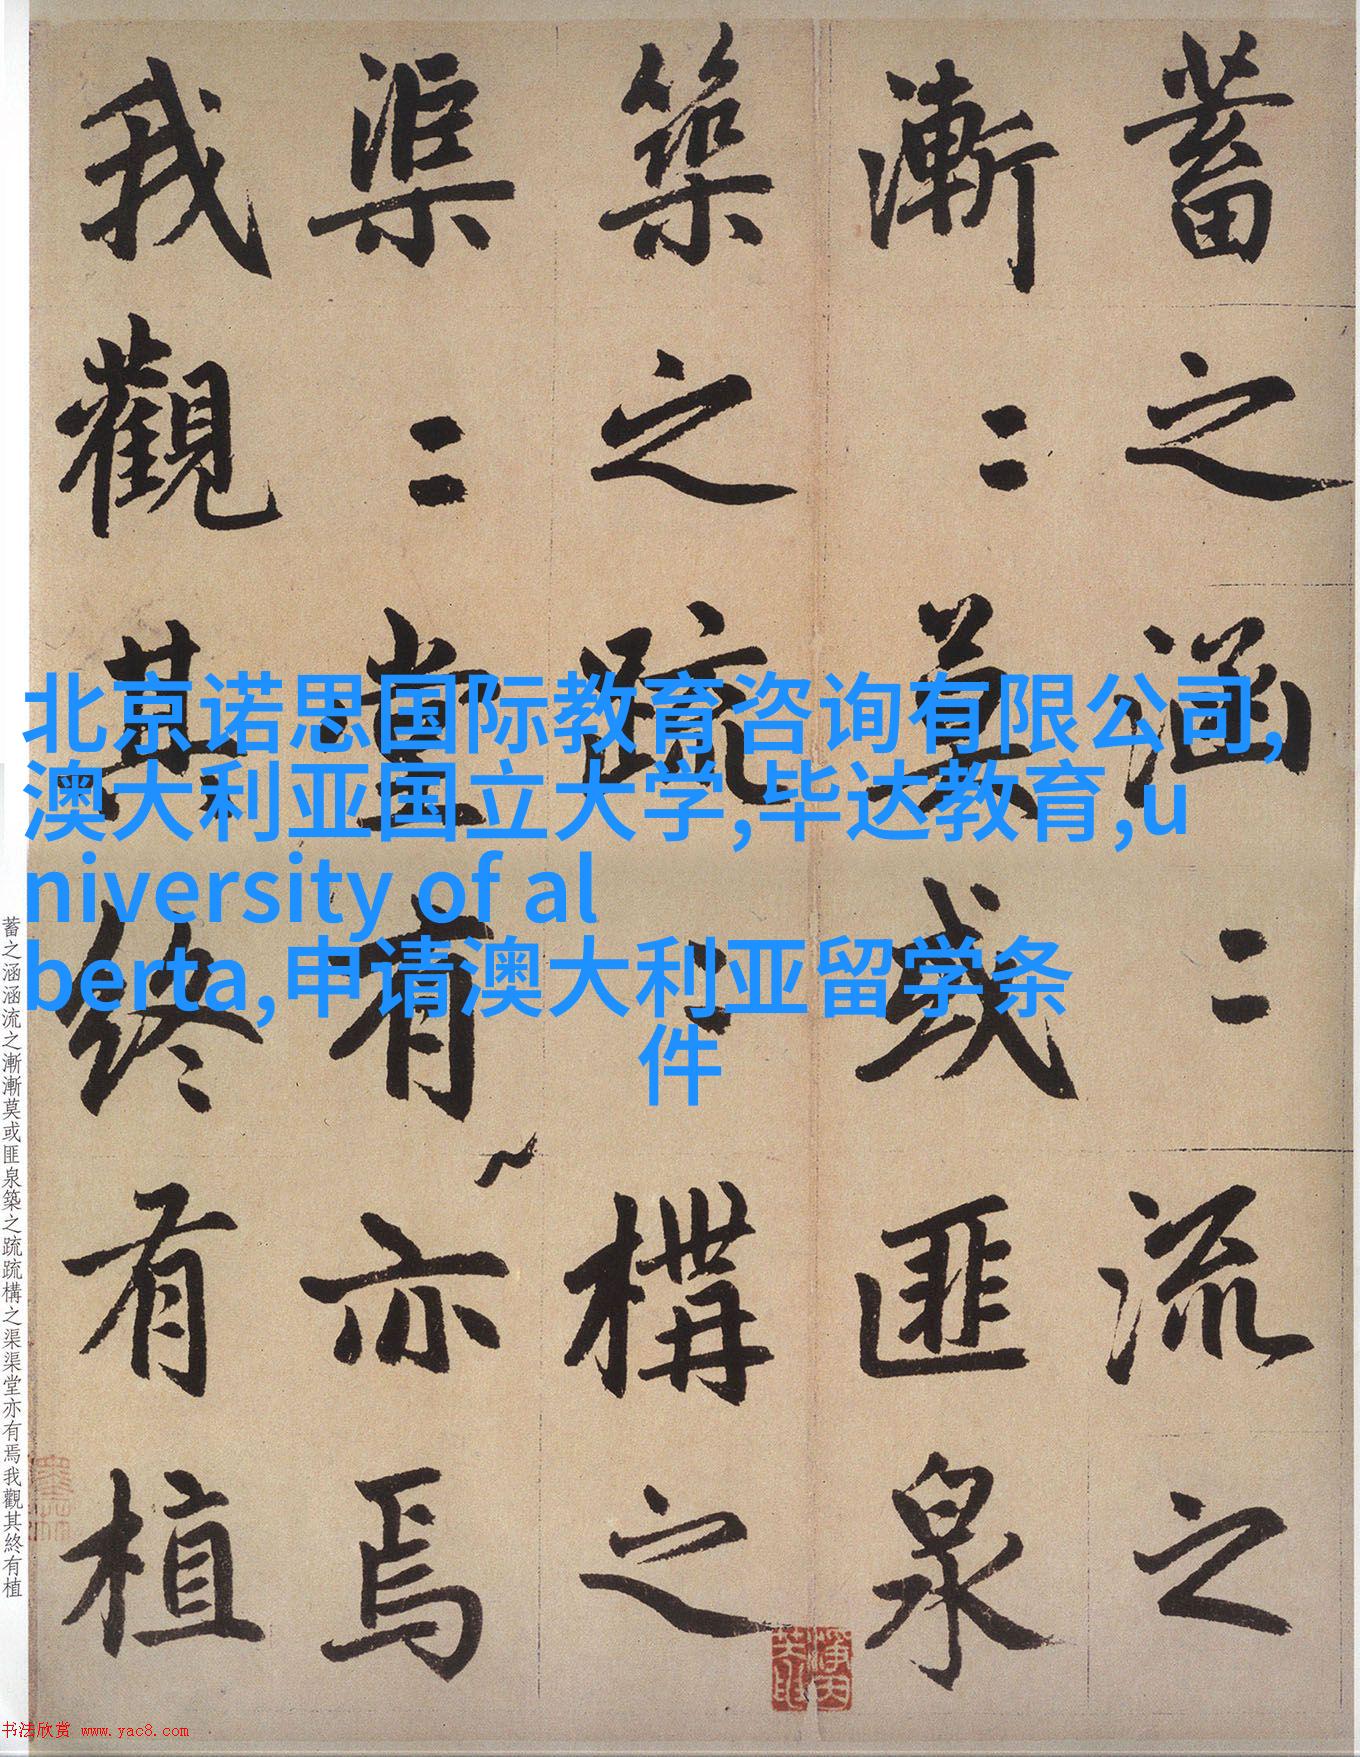 蓄之涵〻流之
漸〻莫或匪泉
築之疏〻構之
渠〻堂有亦焉
我觀其終有植
北京诺思国际教育咨询有限公司,
澳大利亚国立大学,毕达教育,u
niversity of al
berta,申请澳大利亚留学条
件
蓄之涵涵流之漸漸莫或匪泉築之疏疏構之渠渠堂亦有焉我觀其終有植
书法欣赏 www.yac8.com